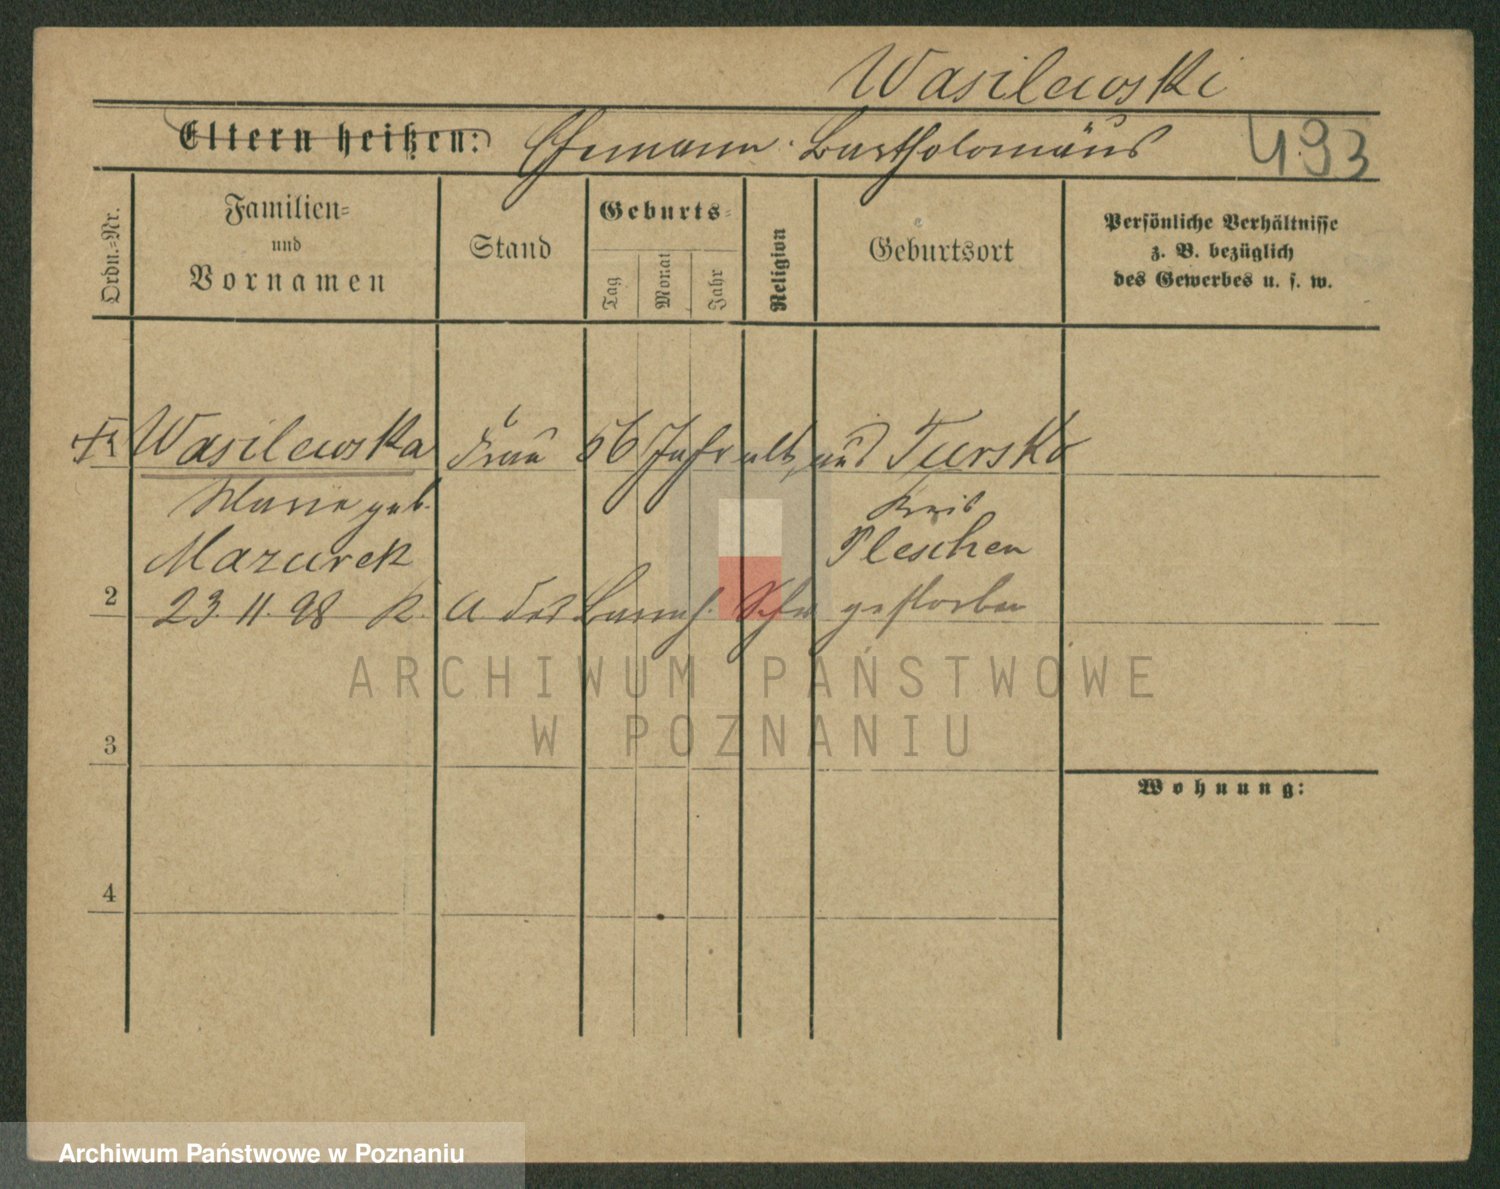 Wasilewski
Eltern heißen: Ehemann Bartholomäus 493
Ordn.=Nr.
Familien=
und
Vornamen
Stand
Geburts=
Tag
Monat
Jahr
Religion
Geburtsort
Persönliche Verhältnisse
z. B. bezüglich
des Gewerbes u. s. w.
Wasilewska Frau 56 Jahr alt aus Tursko
Marie geb. Kreis
Mazurek Pleschen
2 23. 11. 98 R. a der gestorben
3
Wohnung:
4
ARCHIWUM PAŃSTWOWE
W POZNANIU
Archiwum Państwowe w Poznaniu